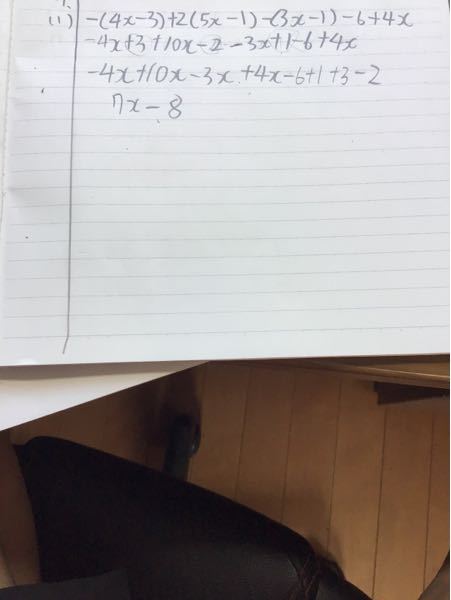 (1) -(4x-3)+2(5x-1)-(3x-1)-6+4x
-4x+3+10x-2-3x+1-6+4x
-4x+10x-3x+4x-6+1+3-2
7x-8